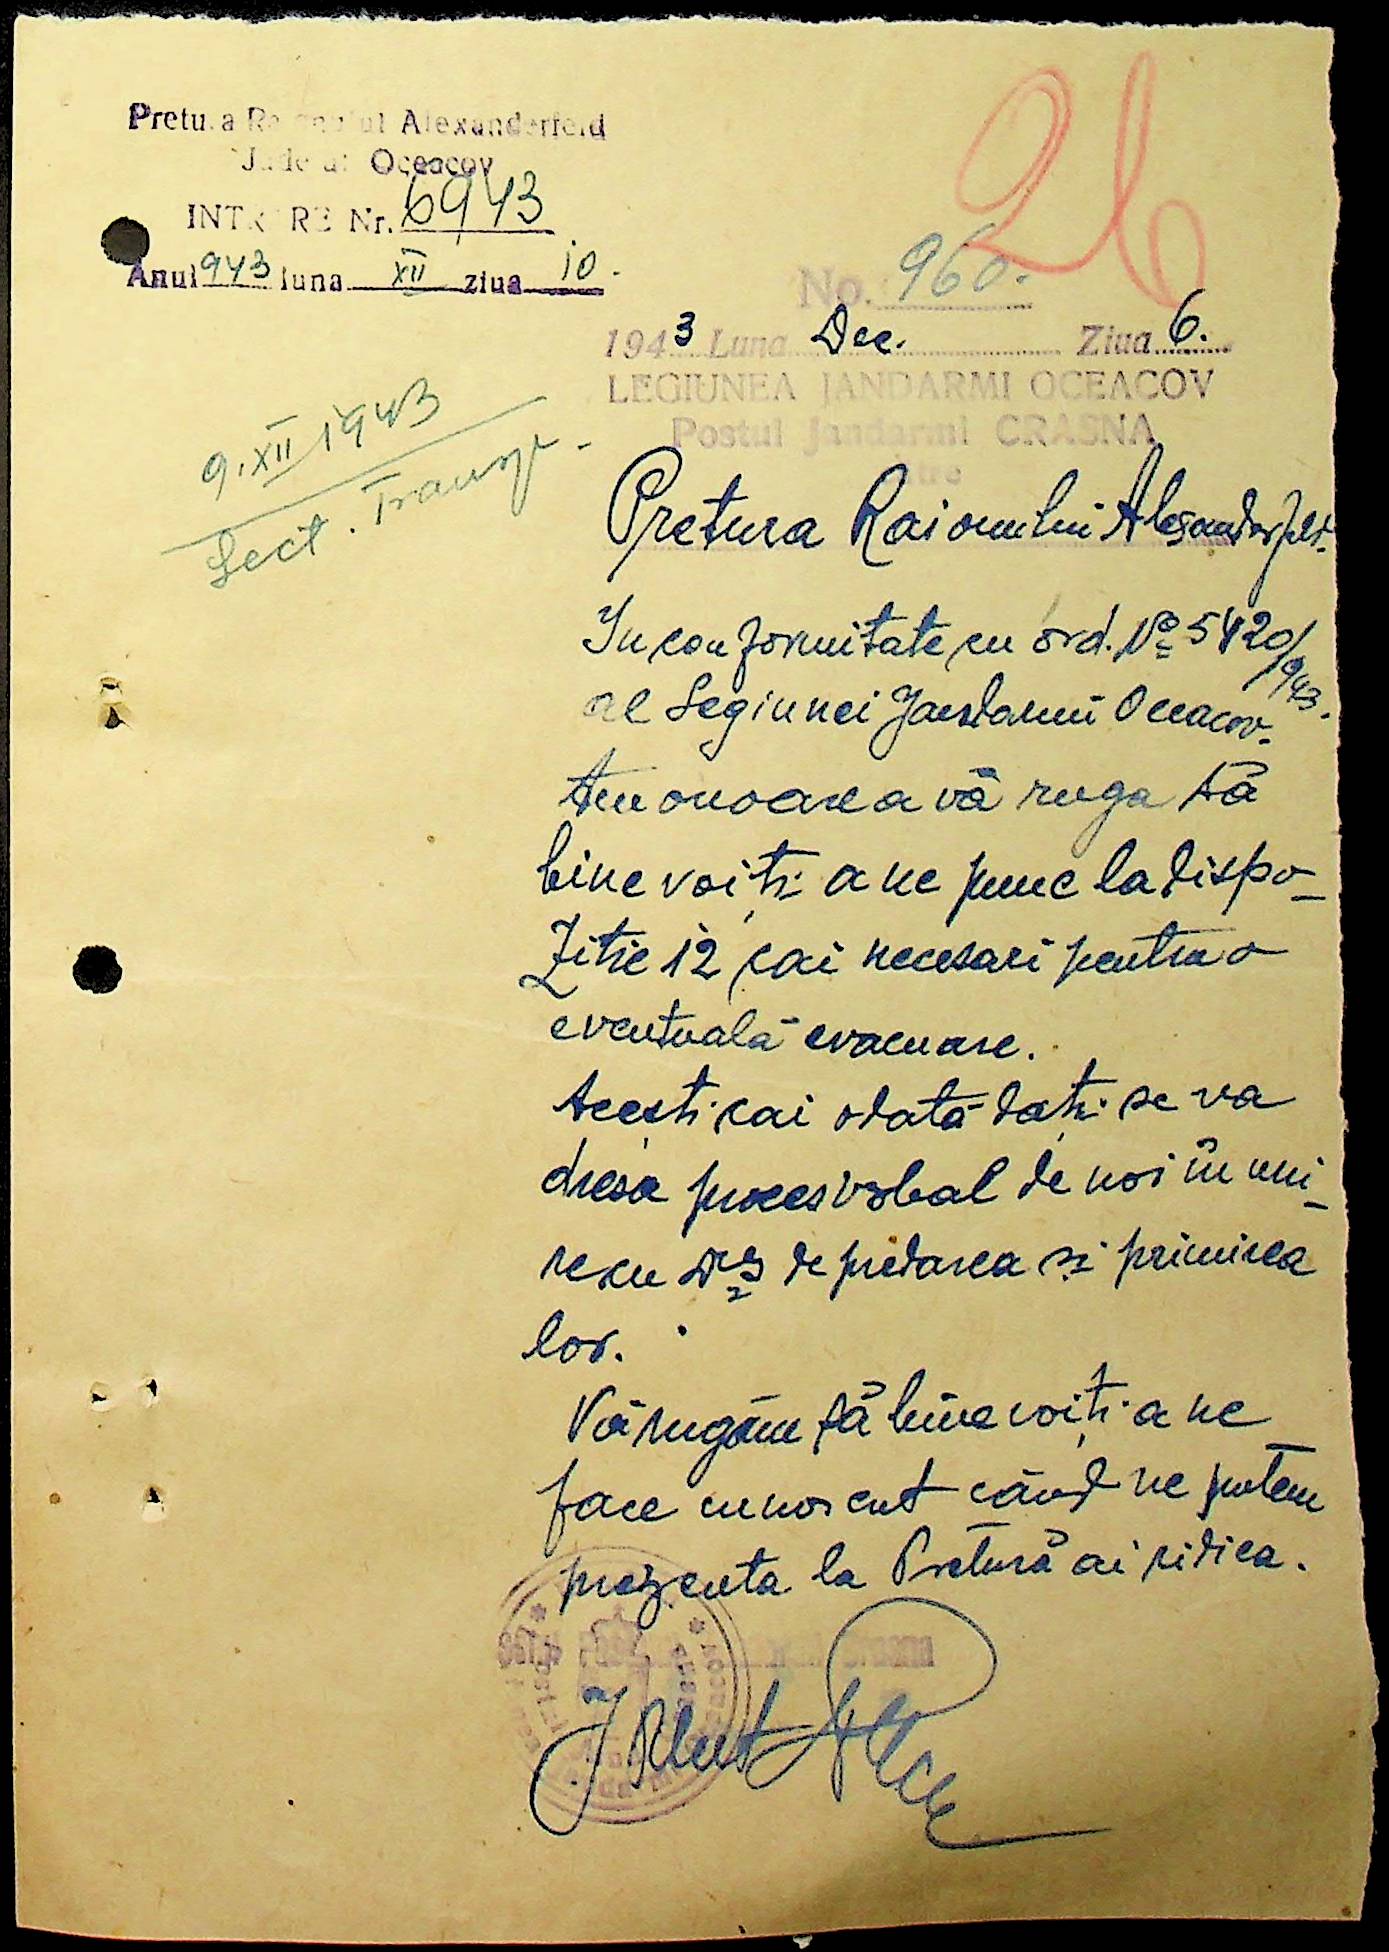 Pretura Raionului Alexanderfeld
Judetul Oceacov
INTRARE Nr. 6943
Anul 943 luna XII ziua 10.
26
No. 960.
1943 Luna Dec. Ziua 6.
LEGIUNEA JANDARMI OCEACOV
Postul Jandarmi CRASNA
către
9.XII 1943
Sect.
Pretura Raionului Alexandarfeld.
In conformitate cu ord. No 5420/943.
al Legiunei Jandarmi Oceacov.
Am onoarea vă ruga să
bine voiți a ne pune la dispo-
ziție 12 cai necesari pentru o
eventuală evacuare.
Acești cai odată dați se va
dresa proces verbal de noi în uni-
re cu Dvs de predarea și primirea
lor.
Vă rugăm să bine voiți a ne
face cunoscut când ne putem
prezenta la Pretură ai ridica.
Crasna